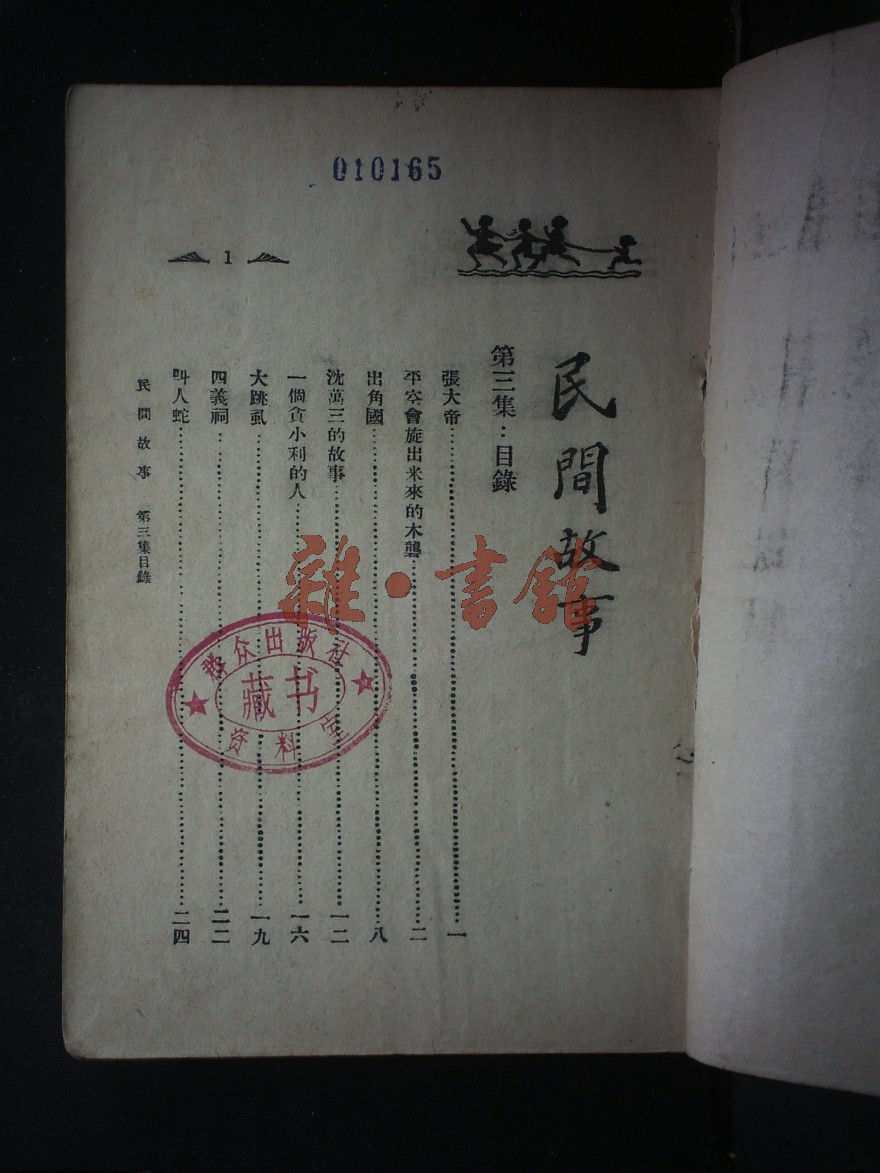 010165
1
民間故事
第三集：目錄
張大帝……一
平空會旋出米來的木礱……二
出角國……八
沈萬三的故事……一二
一個貪小利的人……一六
大跳虱……一九
四義祠……二二
叫人蛇……二四
民間故事 第三集目錄
雜·書館
群众出版社
藏书
资料室